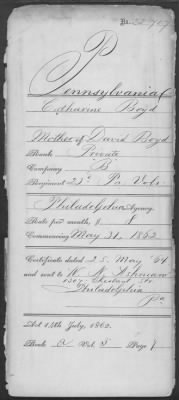 No.
Pennsylvania
Catharine Boyd
Mother of David Boyd
Rank Private
Company B
Regiment 23d Pa Vols
Philadelphia Agency.
Rate per month, $ 8
Commencing May 31, 1862
Certificate dated 25. May '64
and sent to W. N. Ashman
Chestnut St
Philadelphia
Pa
Act 14th July, 1862.
Book A Vol. 3 Page